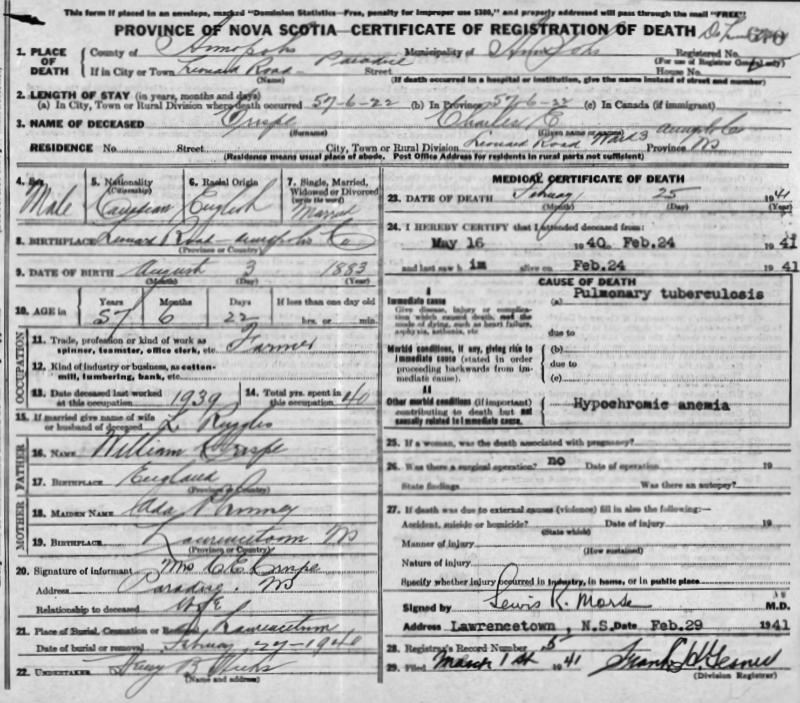 This form if placed in an envelope, marked "Dominion Statistics—Free, penalty for improper use $300," and properly addressed will pass through the mail "FREE"
PROVINCE OF NOVA SCOTIA—CERTIFICATE OF REGISTRATION OF DEATH 670
1. PLACE OF DEATH County of Annapolis Municipality of Annapolis Registered No.
(For use of Registrar General only)
If in City or Town Leonard Road Paradise Street House No.
(Name) (If death occurred in a hospital or institution, give the name instead of street and number)
2. LENGTH OF STAY (in years, months and days)
(a) In City, Town or Rural Division where death occurred 57-6-22 (b) In Province 57-6-22 (c) In Canada (if immigrant)
3. NAME OF DECEASED Crispe Charles E
(Surname) (Given name or names)
RESIDENCE No. Street City, Town or Rural Division Leonard Road Ward 3 Annapolis Co Province NS
(Residence means usual place of abode. Post Office Address for residents in rural parts not sufficient)
4. Sex Male
5. Nationality (Citizenship) Canadian
6. Racial Origin English
7. Single, Married, Widowed or Divorced (write the word) Married
8. BIRTHPLACE Leonard Road Annapolis Co
(Province or Country)
9. DATE OF BIRTH August 3 1883
(Month) (Day) (Year)
10. AGE in Years Months Days If less than one day old
57 6 22 hrs. or min.
OCCUPATION
11. Trade, profession or kind of work as spinner, teamster, office clerk, etc. Farmer
12. Kind of industry or business, as cotton-mill, lumbering, bank, etc.
13. Date deceased last worked at this occupation 1939
14. Total yrs. spent in this occupation 40
15. If married give name of wife or husband of deceased L Ruggles
FATHER
16. NAME William Crispe
17. BIRTHPLACE England
(Province or Country)
MOTHER
18. MAIDEN NAME Ada
19. BIRTHPLACE Lawrencetown NS
(Province or Country)
20. Signature of informant Mrs C E Crispe
Address Paradise, NS
Relationship to deceased Wife
21. Place of Burial, Cremation or Removal Lawrencetown
Date of burial or removal February 27-1940
22. UNDERTAKER B Weeks
(Name and address)
MEDICAL CERTIFICATE OF DEATH
23. DATE OF DEATH February 25 1941
(Month) (Day) (Year)
24. I HEREBY CERTIFY that I attended deceased from:
May 16 1940 Feb.24 1941
and last saw him alive on Feb.24 1941
CAUSE OF DEATH
I
Immediate cause (a) Pulmonary tuberculosis
Give disease, injury or complication which caused death, not the mode of dying, such as heart failure, asphyxia, asthenia, etc
due to
Morbid conditions, if any, giving rise to immediate cause (stated in order proceeding backwards from immediate cause).
(b)
due to
(c)
II
Other morbid conditions (if important) contributing to death but not causally related to immediate cause. Hypochromic anemia
25. If a woman, was the death associated with pregnancy?
26. Was there a surgical operation? no Date of operation 19
State findings Was there an autopsy?
27. If death was due to external causes (violence) fill in also the following:—
Accident, suicide or homicide? Date of injury 19
(State which)
Manner of injury
(How sustained)
Nature of injury
Specify whether injury occurred in industry, in home, or in public place
Signed by Lewis R. Morse M.D.
Address Lawrencetown, N.S. Date Feb.29 1941
28. Registrar's Record Number 5
29. Filed March 1st 1941 Frank H Gesner
(Division Registrar)